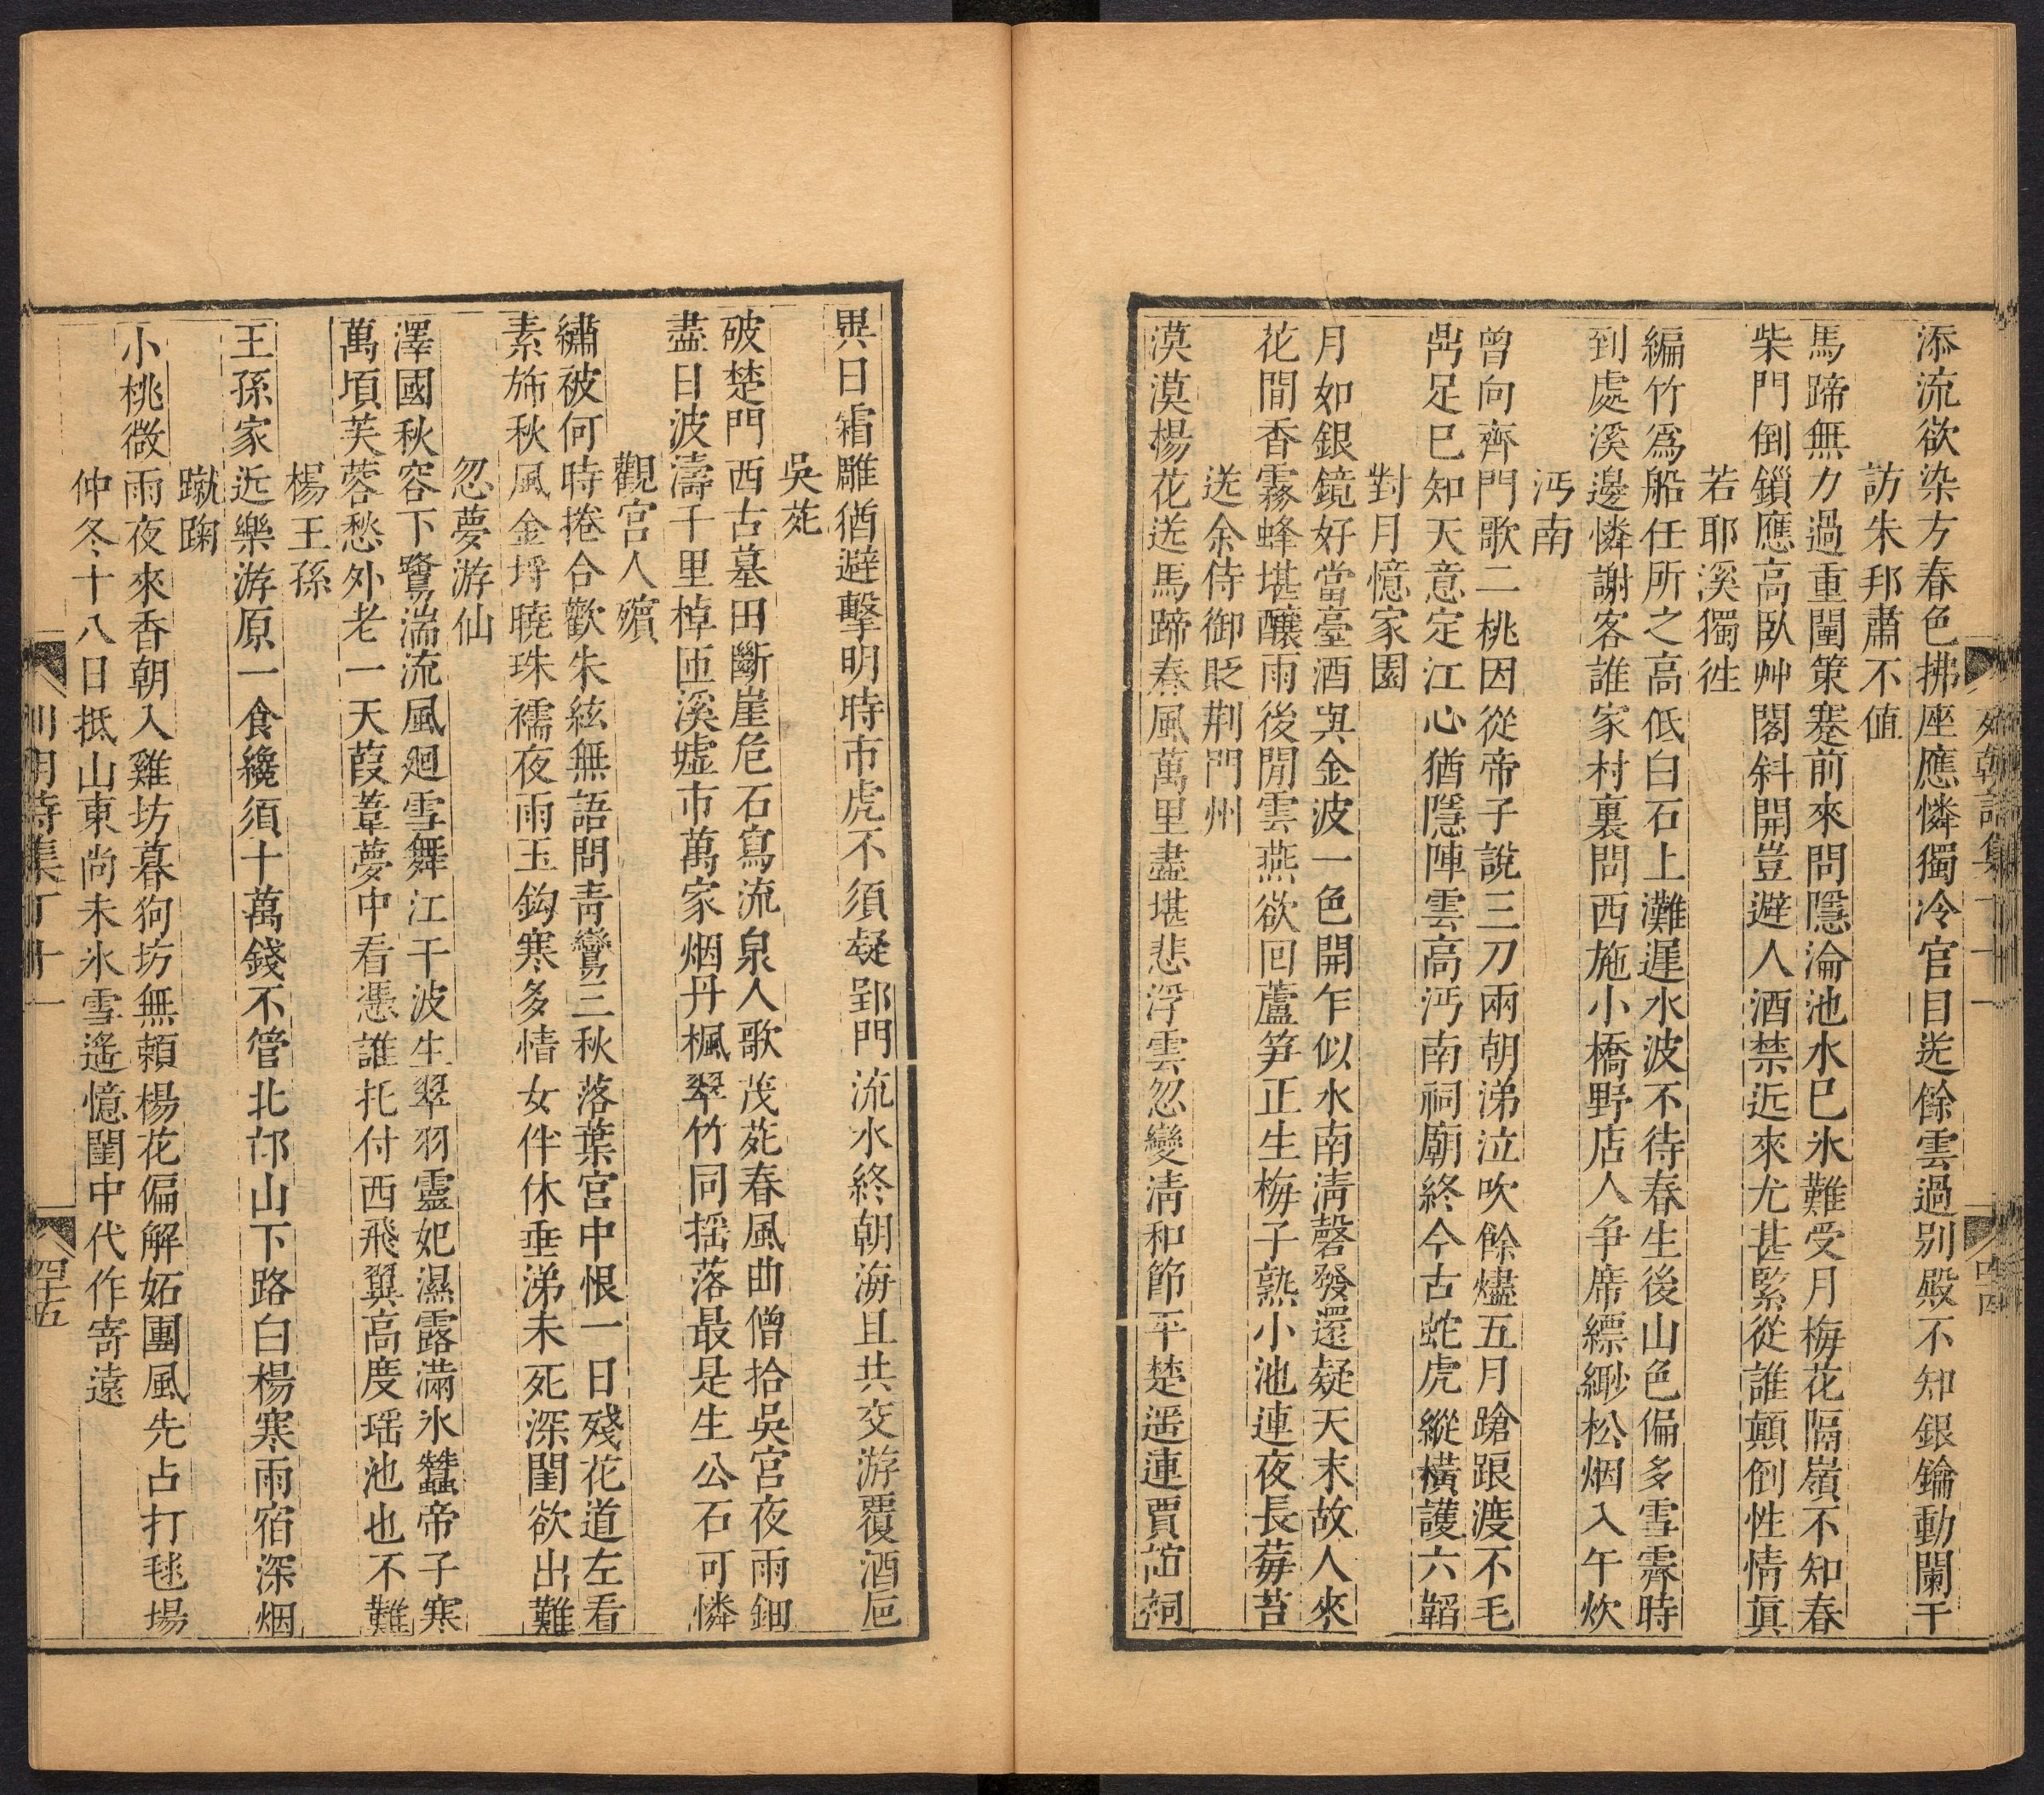 添流欲染方春色拂座應憐獨冷官目送餘雲過別殿不知銀鑰動闌干
訪朱邦肅不値
馬蹄無力過重闉策蹇前來問隱淪池水已氷難受月梅花隔嶺不知春
柴門倒鎖應高臥艸閣斜開豈避人酒禁近來尤甚緊從誰顛倒性情眞
若耶溪獨徃
編竹爲船任所之高低白石上灘遲水波不待春生後山色偏多雪霽時
到處溪邊憐謝客誰家村裏問西施小橋野店人爭席縹緲松烟入午炊
沔南
曾向齊門歌二桃因從帝子說三刀兩朝涕泣吹餘燼五月蹌踉渡不毛
鼎足已知天意定江心猶隱陣雲高沔南祠廟終今古蛇虎縱橫護六韜
對月憶家園
月如銀鏡好當臺酒與金波一色開乍似水南淸磬發還疑天末故人來
花間香霧蜂堪釀雨後閒雲燕欲回蘆笋正生梅子熟小池連夜長莓苔
送余侍御貶荆門州
漠漠楊花送馬蹄春風萬里盡堪悲浮雲忽變淸和節平楚遥連賈誼祠
異日霜雕猶避擊明時市虎不須疑郢門流水終朝海且共交游覆酒巵
吳苑
破楚門西古墓田斷崖危石寫流泉人歌茂苑春風曲僧拾吳宮夜雨鈿
盡日波濤千里棹匝溪墟市萬家烟丹楓翠竹同搖落最是生公石可憐
觀宮人殯
繡被何時捲合歡朱絃無語問靑鸞三秋落葉宮中恨一日殘花道左看
素旆秋風金埒曉珠襦夜雨玉鈎寒多情女伴休垂涕未死深閨欲出難
忽夢游仙
澤國秋容下鷺湍流風廻雪舞江干波生翠羽靈妃濕露滿氷蠶帝子寒
萬頃芙蓉愁外老一天葭葦夢中看憑誰托付西飛翼高度瑶池也不難
楊王孫
王孫家近樂游原一食纔須十萬錢不管北邙山下路白楊寒雨宿深烟
蹴踘
小桃微雨夜來香朝入雞坊暮狗坊無賴楊花偏解妬團風先占打毬場
仲冬十八日抵山東尚未氷雪遙憶閨中代作寄遠
四十五